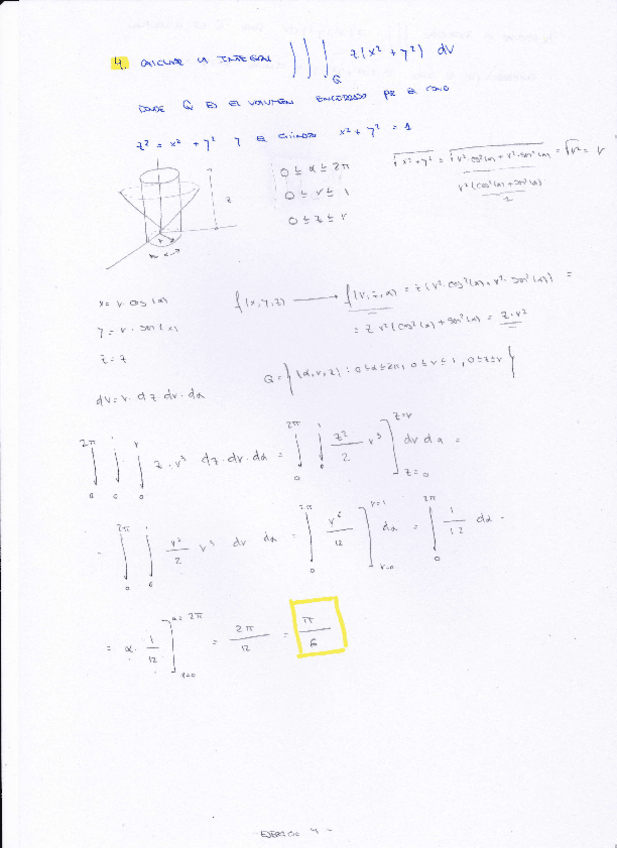 4. CALCULAR LA INTEGRAL ∭_Q z(x² + y²) dV
DONDE Q ES EL VOLUMEN ENCERRADO POR EL CONO
z² = x² + y² Y EL CILINDRO x² + y² = 1
0 ≤ α ≤ 2π
0 ≤ r ≤ 1
0 ≤ z ≤ r
√(x² + y²) = √(r² cos²(α) + r² sen²(α)) = √r² = r
r² (cos²(α) + sen²(α))
1
z
r
x = r cos(α)
y = r · sen(α)
z = z
dV = r · dz · dr · dα
f(x,y,z) → f(r,z,α) = z (r² · cos²(α) + r² · sen²(α)) =
= z r² (cos²(α) + sen²(α)) = z · r²
Q = { (α, r, z) : 0 ≤ α ≤ 2π, 0 ≤ r ≤ 1, 0 ≤ z ≤ r }
∫₀^2π ∫₀^1 ∫₀^r z · r³ dz · dr · dα = ∫₀^2π ∫₀^1 z²/2 r³ ]_{z=0}^{z=r} dr dα =
= ∫₀^2π ∫₀^1 r²/2 r³ dr dα = ∫₀^2π r⁶/12 ]_{r=0}^{r=1} dα = ∫₀^2π 1/12 dα =
= α · 1/12 ]_{α=0}^{α=2π} = 2π/12 = π/6
EJERCICIO 4 -